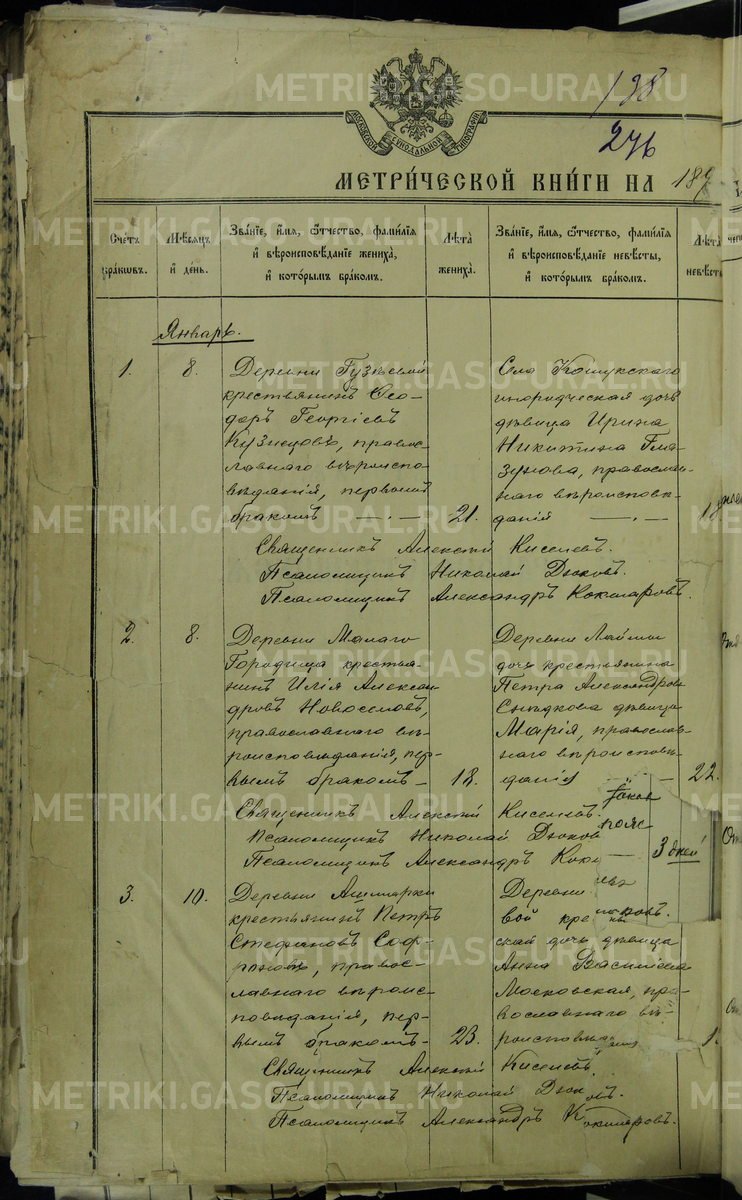 198
276
МОСКОВСКОЙ СѴНОДАЛЬНОЙ ТИПОГРАФІИ
МЕТРИ́ЧЕСКОЙ КНИ́ГИ НА 189
Счетъ бра́кѡвъ.
Мѣсѧцъ и҆ де́нь.
Зва́нїе, и҆́мѧ, ѻ҆́тчество, фамѝлїѧ и҆ вѣроисповѣ́данїе жениха̀, и҆ кото́рымъ бра́комъ.
Лѣ̀та жениха̀.
Зва́нїе, и҆́мѧ, ѻ҆́тчество, фамѝлїѧ и҆ вѣроисповѣ́данїе невѣ́сты, и҆ кото́рымъ бра́комъ.
Лѣ̀та невѣ́сты
Январь.
1. 8.
Деревни
крестьянинъ Ѳео-
доръ Георгіевъ
Кузнецовъ, правос-
лавнаго вѣроиспо-
вѣданія, первымъ
бракомъ 21.
Села Кошукскаго
дочь
дѣвица Ирина
Никитина Гла-
зунова, православ-
наго вѣроисповѣ-
данія 18
Священникъ Алексѣй Киселевъ.
Псаломщикъ Николай Дьковъ.
Псаломщикъ Александръ Кокшаровъ.
2. 8.
Деревни Малаго
Городища крестья-
нинъ Илія Алексан
дровъ Новоселовъ,
православнаго вѣ-
роисповѣданія, пер-
вымъ бракомъ 18.
Деревни
дочь крестьянина
Петра Александрова
дѣвица
Марія, православ-
наго вѣроисповѣ-
данія 22.
Священникъ Алексѣй Киселевъ.
Псаломщикъ Николай Дьковъ
Псаломщикъ Александръ Кок
3 дней
3. 10.
Деревни Ашмарки
крестьянинъ Петръ
Стефановъ Соф-
роновъ, правос-
лавнаго вѣроис-
повѣданія, пер-
вымъ бракомъ 23.
Деревни
вой кре
ская дочь дѣвица
Анна Васильева
Московская, пра-
вославнаго вѣ-
роисповѣданія
Священникъ Алексѣй Киселевъ.
Псаломщикъ Николай Дьковъ.
Псаломщикъ Александръ Кокшаровъ.
METRIKI.GASO-URAL.RU